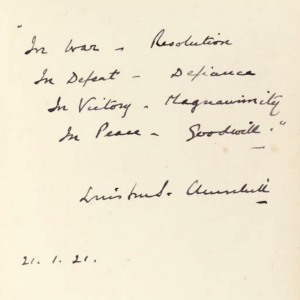 "In War - Resolution
In Defeat - Defiance
In Victory - Magnanimity
In Peace - Goodwill."
Winston S. Churchill
21.1.21.